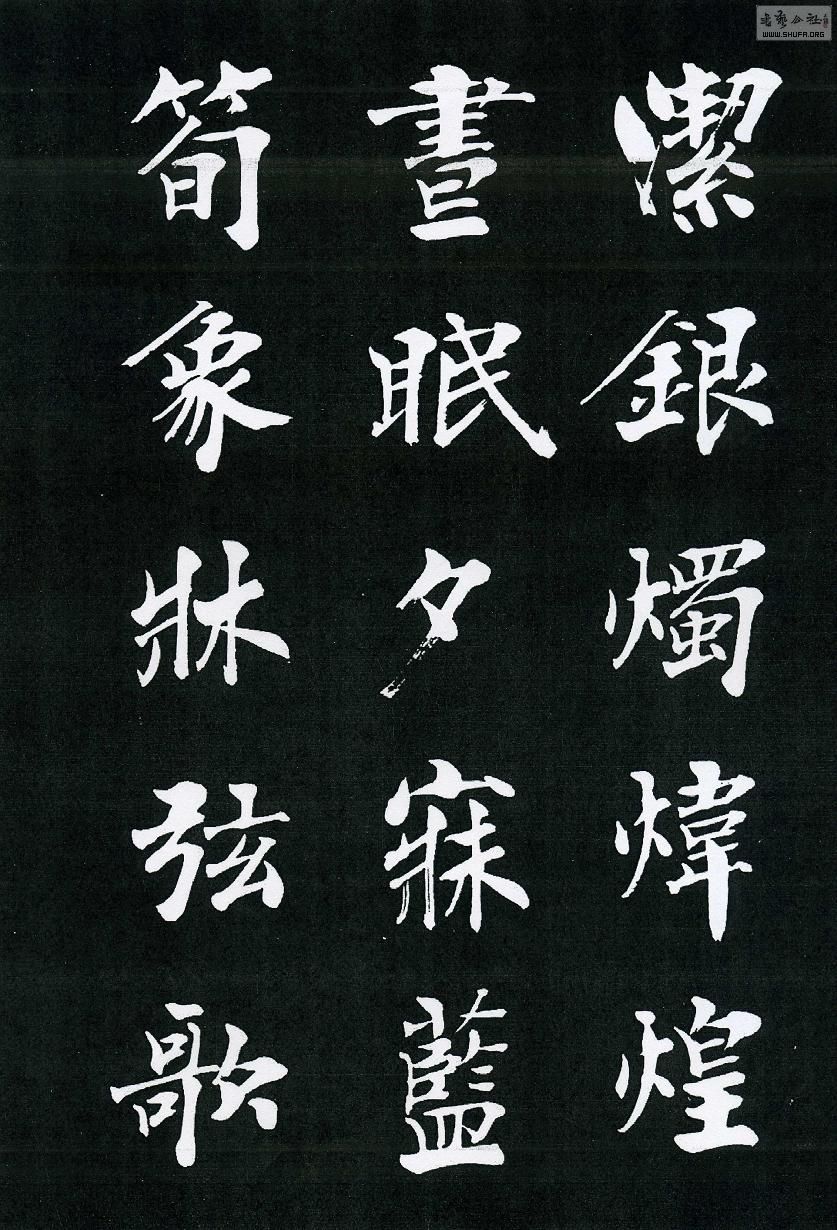 潔銀燭煒煌
晝眠夕寐藍
筍象牀弦歌
WWW.SHUFA.ORG